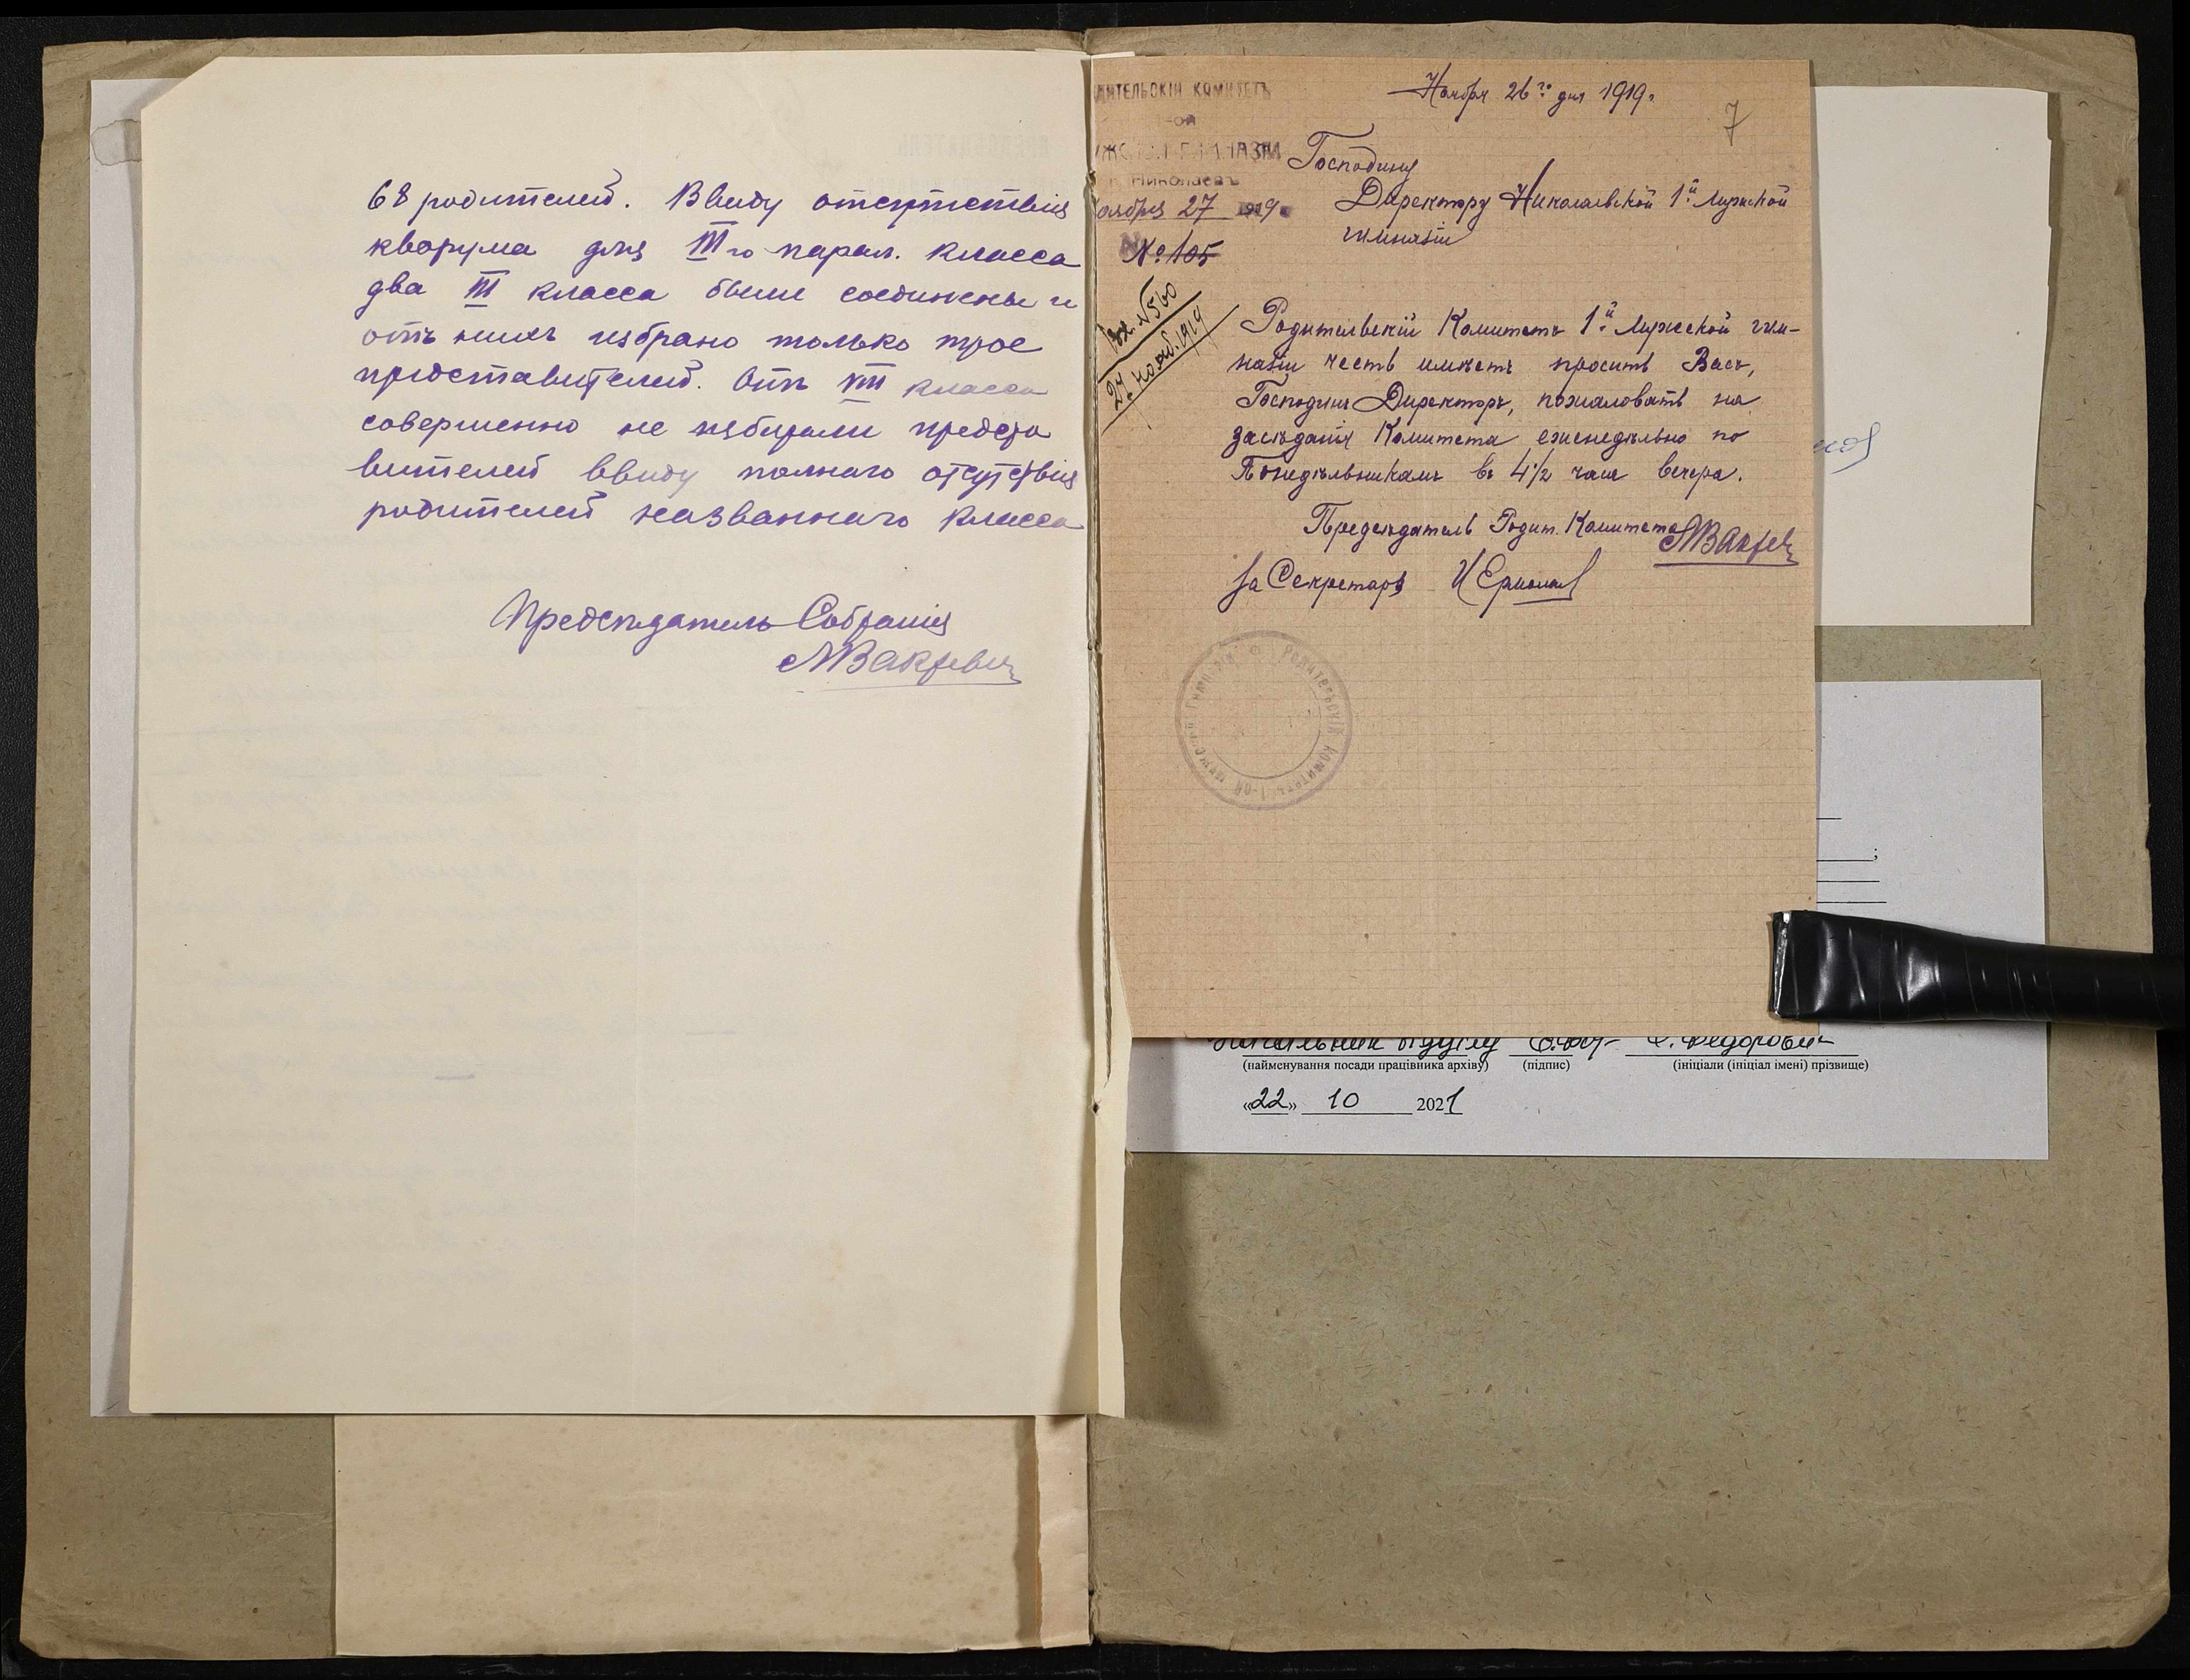 68 родителей. Ввиду отсутствія
кворума для III го парал. класса
два III класса были соединены и
отъ нихъ избрано только трое
представителей. Отъ VIII класса
совершенно не избирали предста
вителей ввиду полнаго отсутствія
родителей названнаго класса
Предсѣдатель Собранія
ДИТЕЛЬСКІЙ КОМИТЕТЪ
1-ой
ЖСКОЙ ГИМНАЗІИ
г. Николаевъ
оября 27 1919 г
№ 105
Вх. №560
27 нояб. 1919
Ноября 26го дня 1919 г.
7
Господину
Директору Николаевской 1й Мужской
гимназіи
Родительскій Комитетъ 1й Мужской гим-
назіи честь имѣетъ просить Васъ,
Господинъ Директоръ, пожаловать на
засѣданія Комитета еженедѣльно по
Понедѣльникамъ въ 4 1/2 часа вечера.
Предсѣдатель Родит. Комитета
За Секретаря
РОДИТЕЛЬСКІЙ КОМИТЕТЪ 1-ОЙ МУЖСКОЙ ГИМНАЗІИ
(найменування посади працівника архіву) (підпис) (ініціали (ініціал імені) прізвище)
«22» 10 2021